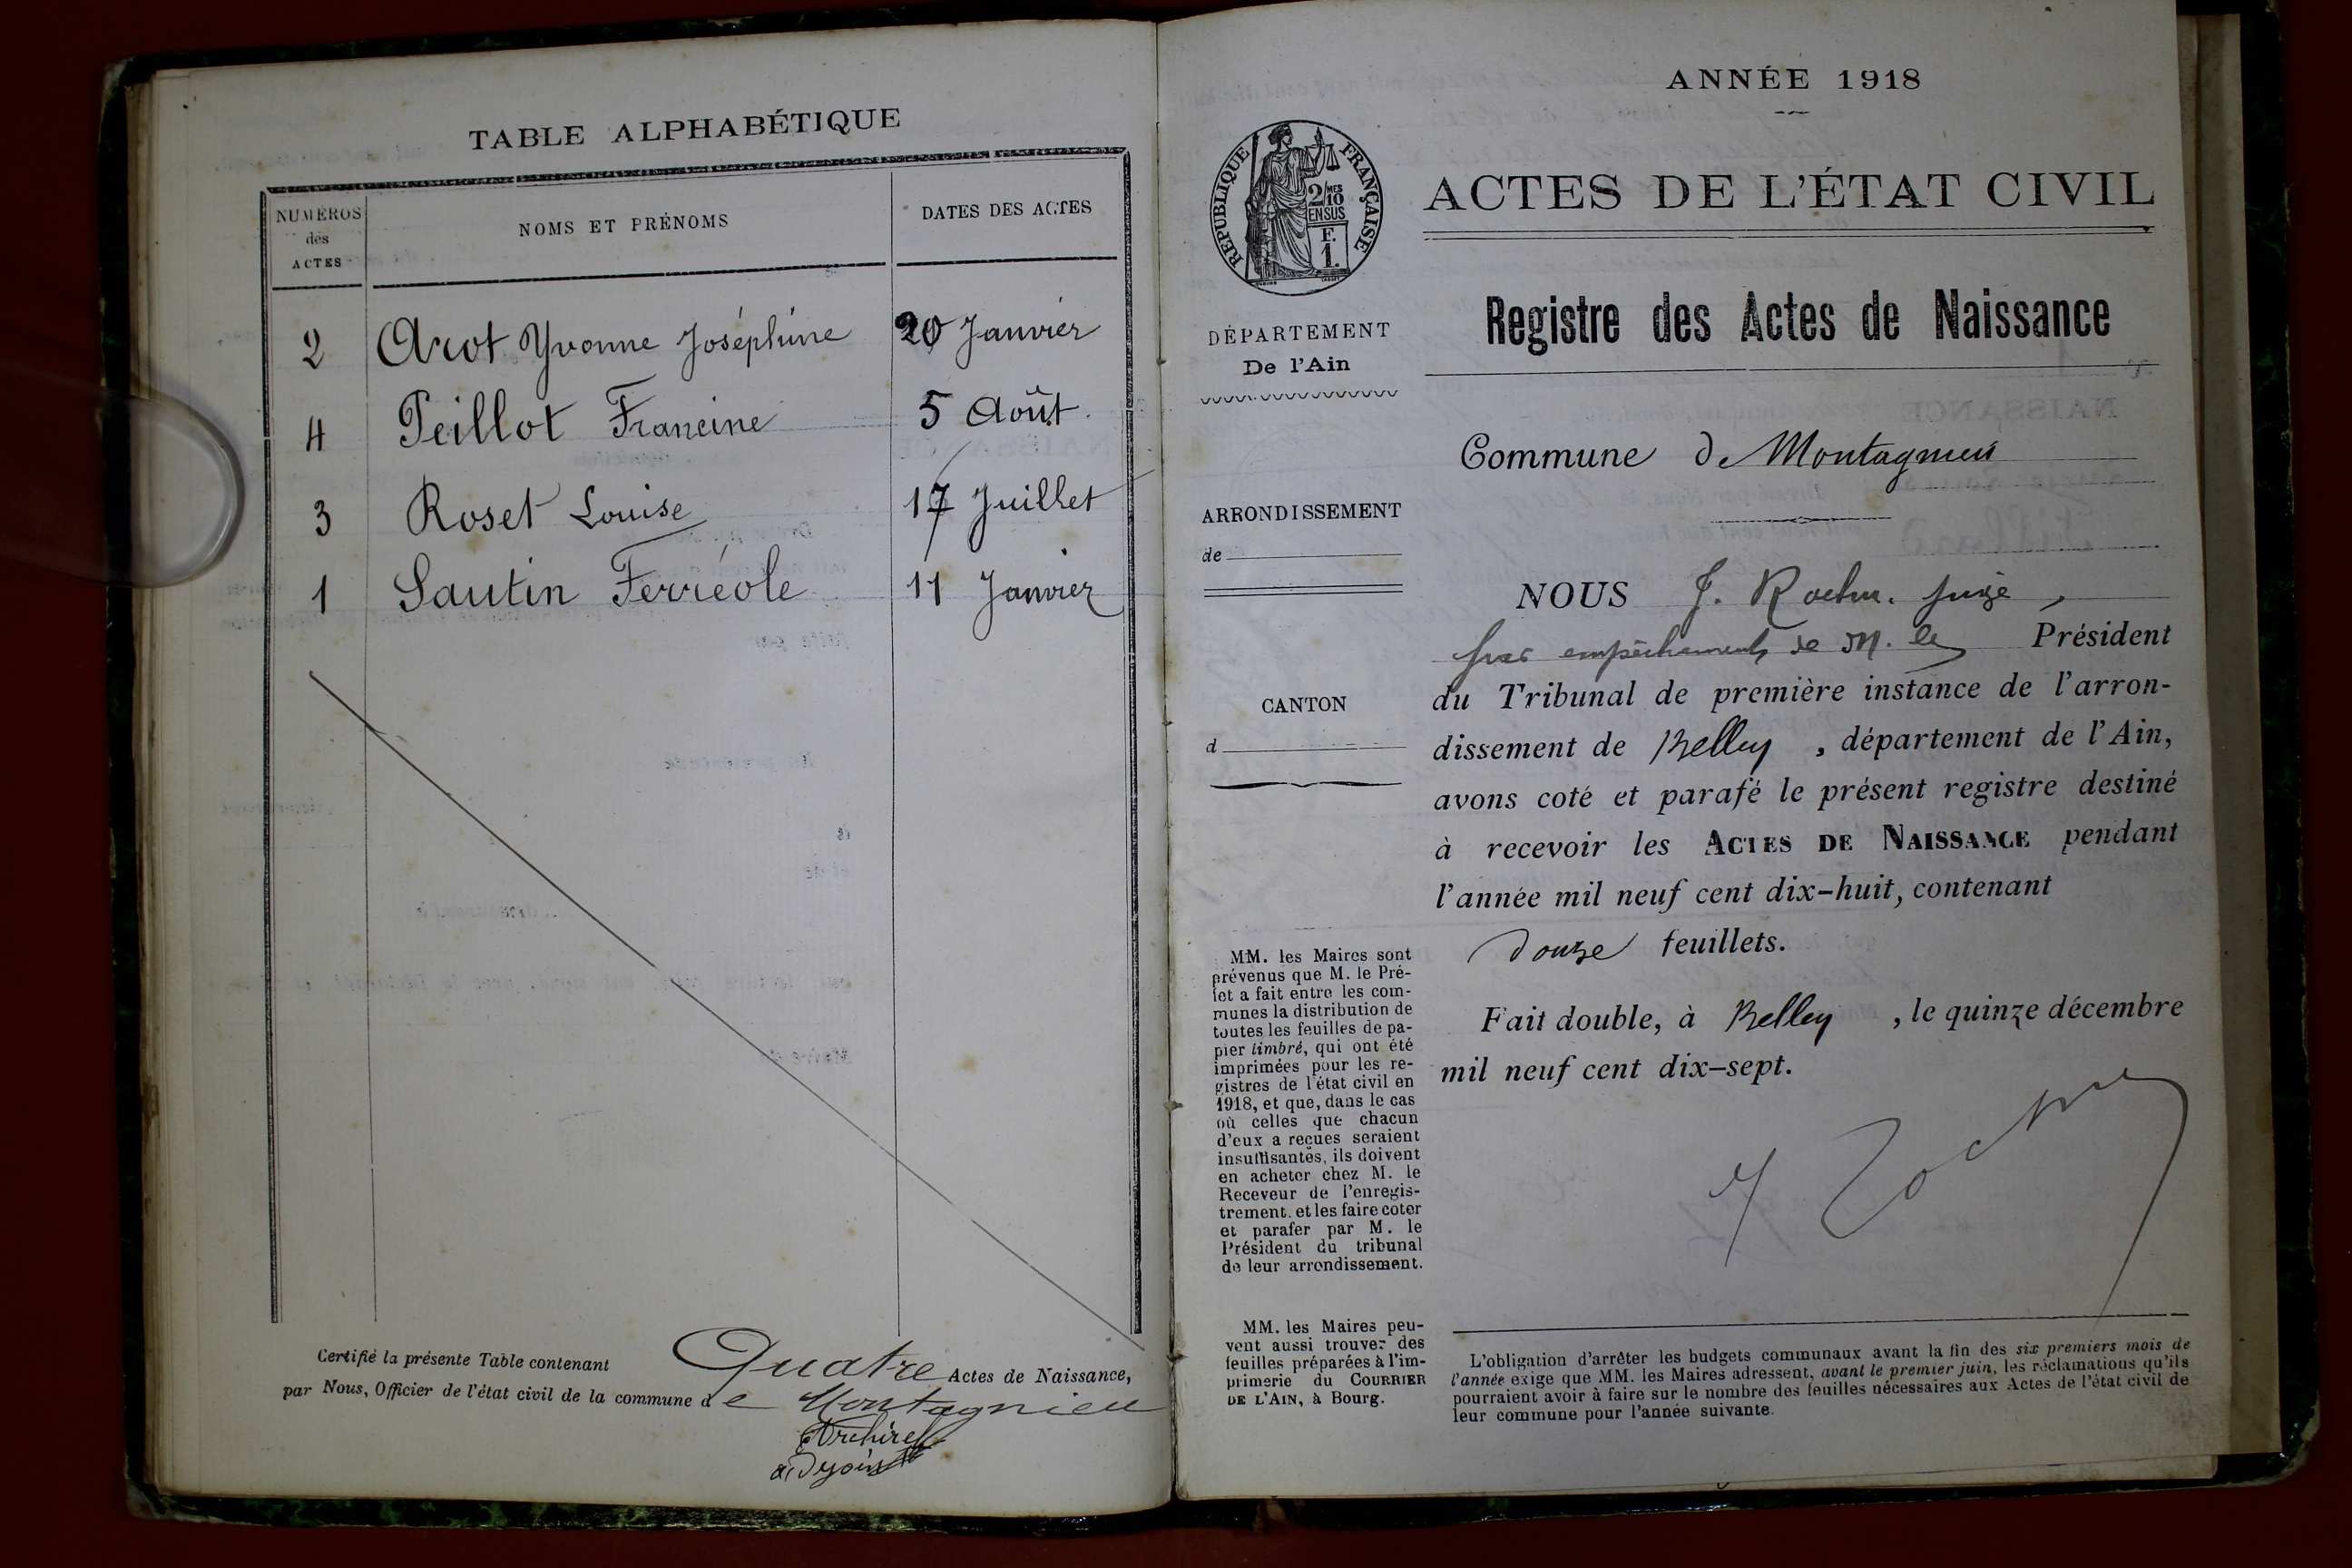 TABLE ALPHABÉTIQUE
NUMÉROS
des
ACTES
NOMS ET PRÉNOMS
DATES DES ACTES
2 Arot Yvonne Joséphine 20 Janvier
4 Peillot Francine 5 Août.
3 Roset Louise 17 Juillet
1 Sautin Ferréole 11 Janvier
Certifié la présente Table contenant Quatre Actes de Naissance,
par Nous, Officier de l'état civil de la commune de Montagnieu
adjoint
ANNÉE 1918
RÉPUBLIQUE FRANÇAISE
2/10 MES
EN SUS
F.
1.
ACTES DE L'ÉTAT CIVIL
Registre des Actes de Naissance
DÉPARTEMENT
De l'Ain
ARRONDISSEMENT
de
CANTON
d
Commune de Montagnieu
NOUS J. Juge,
par empêchement de M. le Président
du Tribunal de première instance de l'arron-
dissement de Belley, département de l'Ain,
avons coté et parafé le présent registre destiné
à recevoir les ACTES DE NAISSANCE pendant
l'année mil neuf cent dix-huit, contenant
douze feuillets.
Fait double, à Belley, le quinze décembre
mil neuf cent dix-sept.
MM. les Maires sont
prévenus que M. le Pré-
fet a fait entre les com-
munes la distribution de
toutes les feuilles de pa-
pier timbré, qui ont été
imprimées pour les re-
gistres de l'état civil en
1918, et que, dans le cas
où celles que chacun
d'eux a reçues seraient
insuffisantes, ils doivent
en acheter chez M. le
Receveur de l'enregis-
trement. et les faire coter
et parafer par M. le
Président du tribunal
de leur arrondissement.
MM. les Maires peu-
vent aussi trouver des
feuilles préparées à l'im-
primerie du COURRIER
DE L'AIN, à Bourg.
L'obligation d'arrêter les budgets communaux avant la fin des six premiers mois de
l'année exige que MM. les Maires adressent, avant le premier juin, les réclamations qu'ils
pourraient avoir à faire sur le nombre des feuilles nécessaires aux Actes de l'état civil de
leur commune pour l'année suivante.